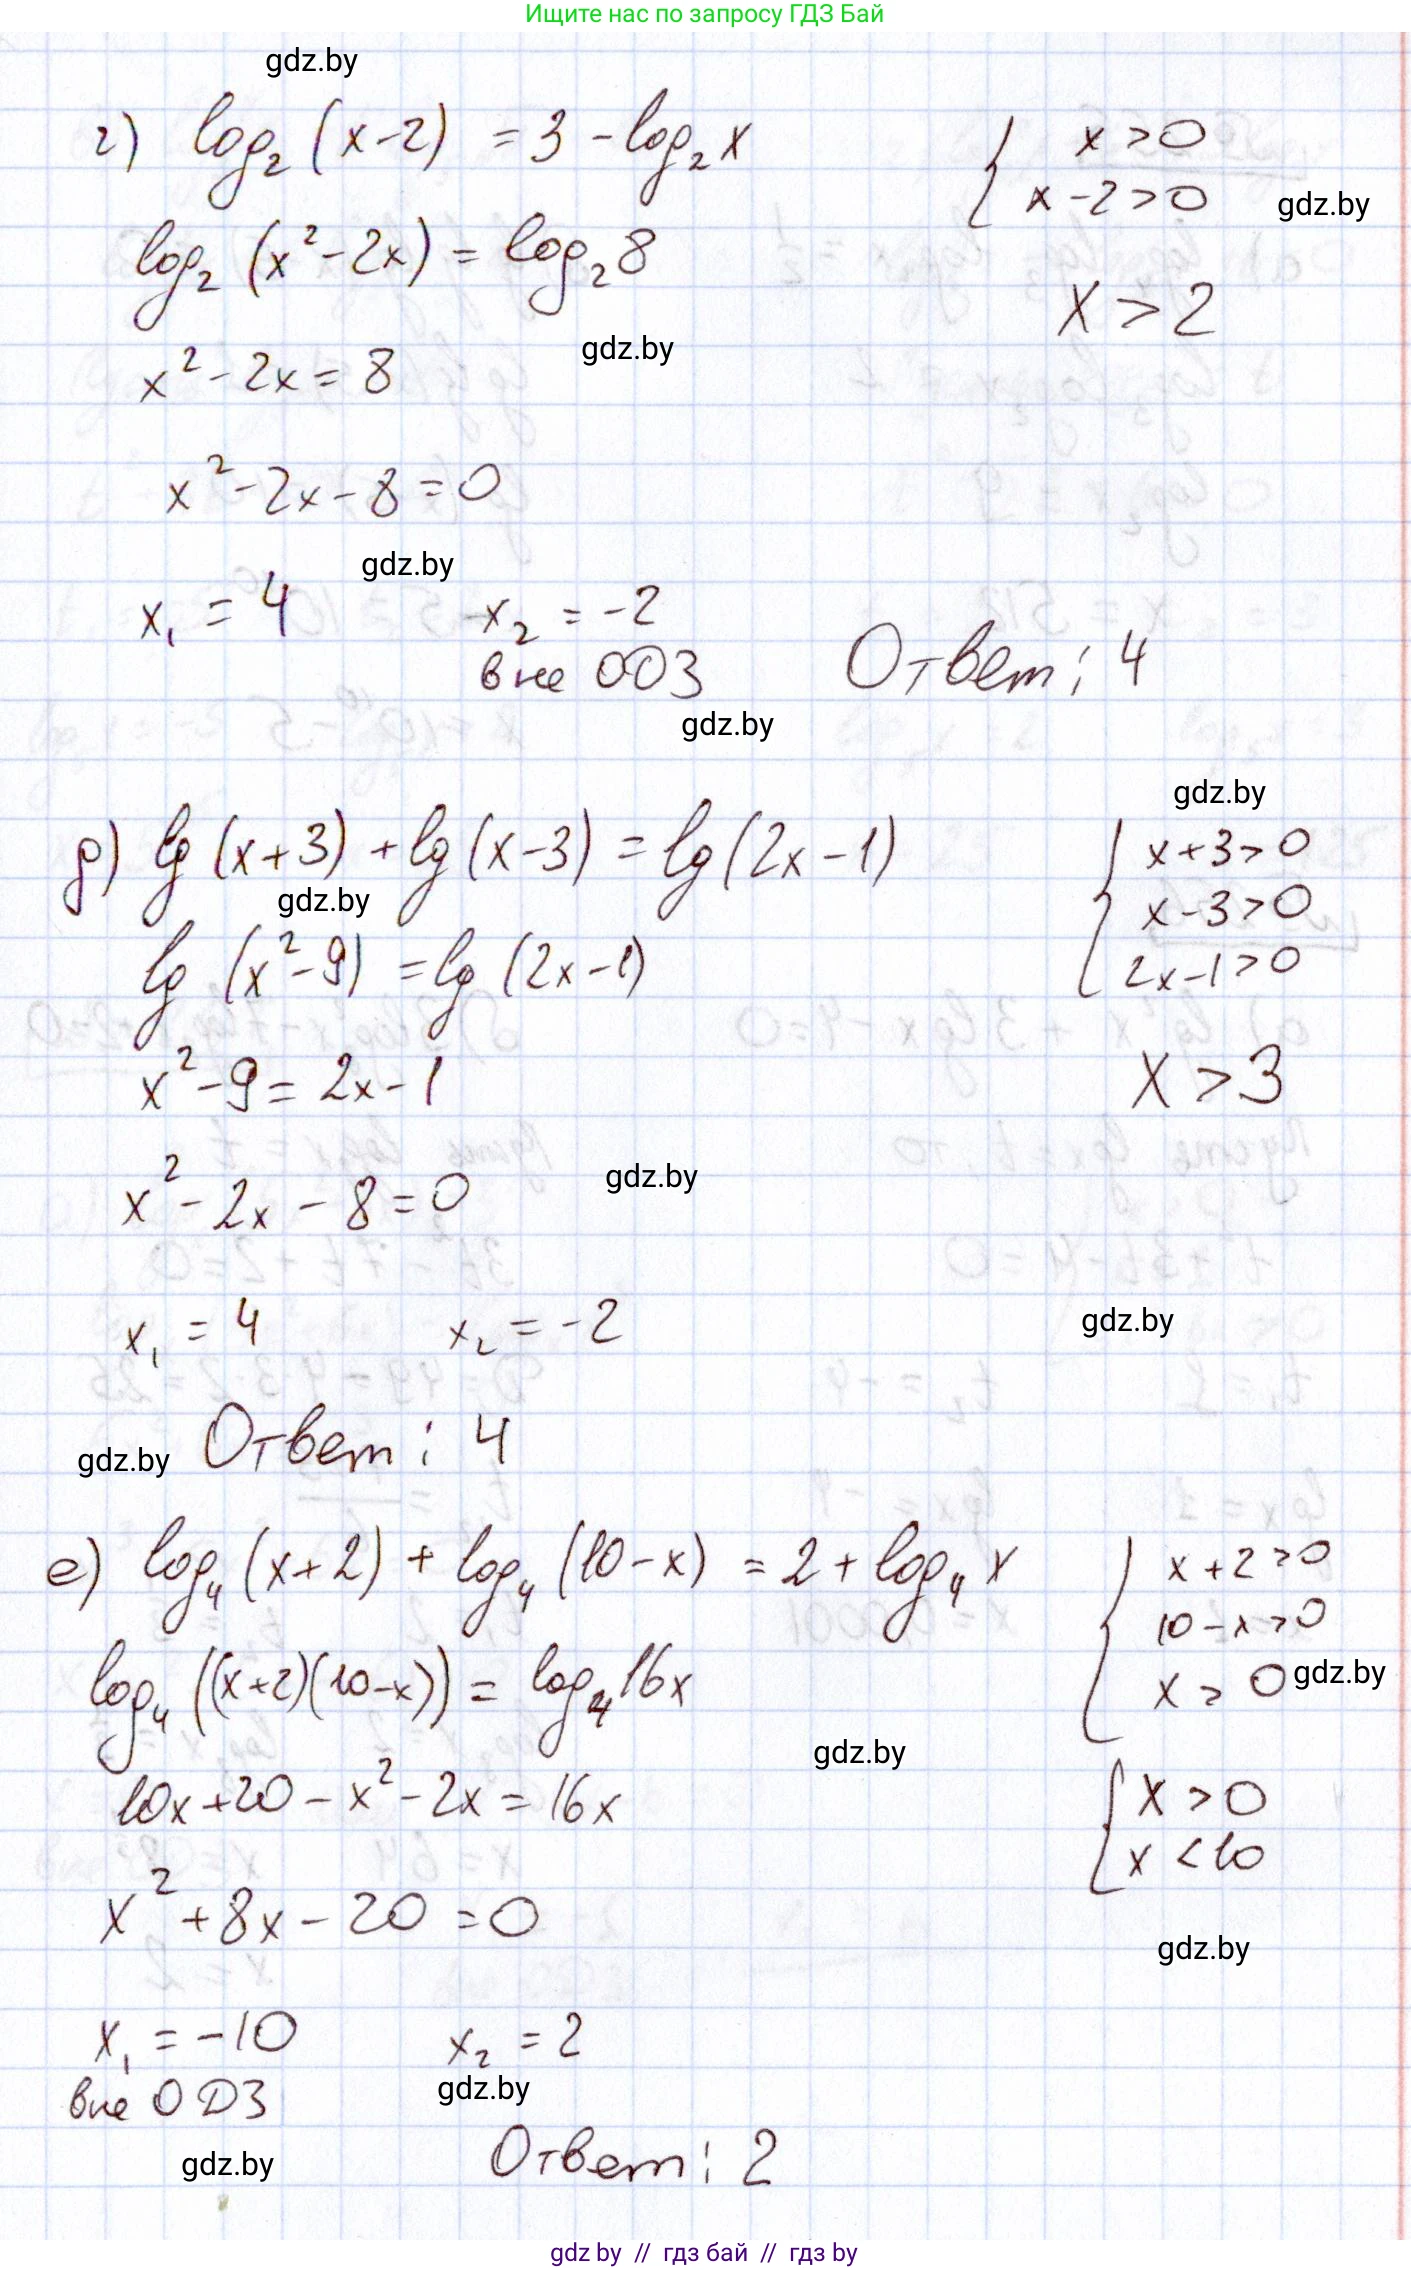 Ищите нас по запросу ГДЗ Бай
gdz.by
г) log₂(x-2) = 3 - log₂x
{ x > 0
x - 2 > 0
gdz.by
log₂(x² - 2x) = log₂8
x > 2
gdz.by
x² - 2x = 8
x² - 2x - 8 = 0
gdz.by
x₁ = 4
x₂ = -2
вне ОДЗ
Ответ: 4
gdz.by
gdz.by
д) lg(x+3) + lg(x-3) = lg(2x-1)
{ x + 3 > 0
x - 3 > 0
2x - 1 > 0
gdz.by
lg(x² - 9) = lg(2x-1)
x² - 9 = 2x - 1
x > 3
gdz.by
x² - 2x - 8 = 0
x₁ = 4
x₂ = -2
gdz.by
Ответ: 4
gdz.by
е) log₄(x+2) + log₄(10-x) = 2 + log₄x
{ x + 2 > 0
10 - x > 0
x > 0
gdz.by
log₄((x+2)(10-x)) = log₄16x
gdz.by
10x + 20 - x² - 2x = 16x
{ x > 0
x < 10
x² + 8x - 20 = 0
gdz.by
x₁ = -10
x₂ = 2
вне ОДЗ
gdz.by
gdz.by
Ответ: 2
gdz by // гдз бай // гдз by